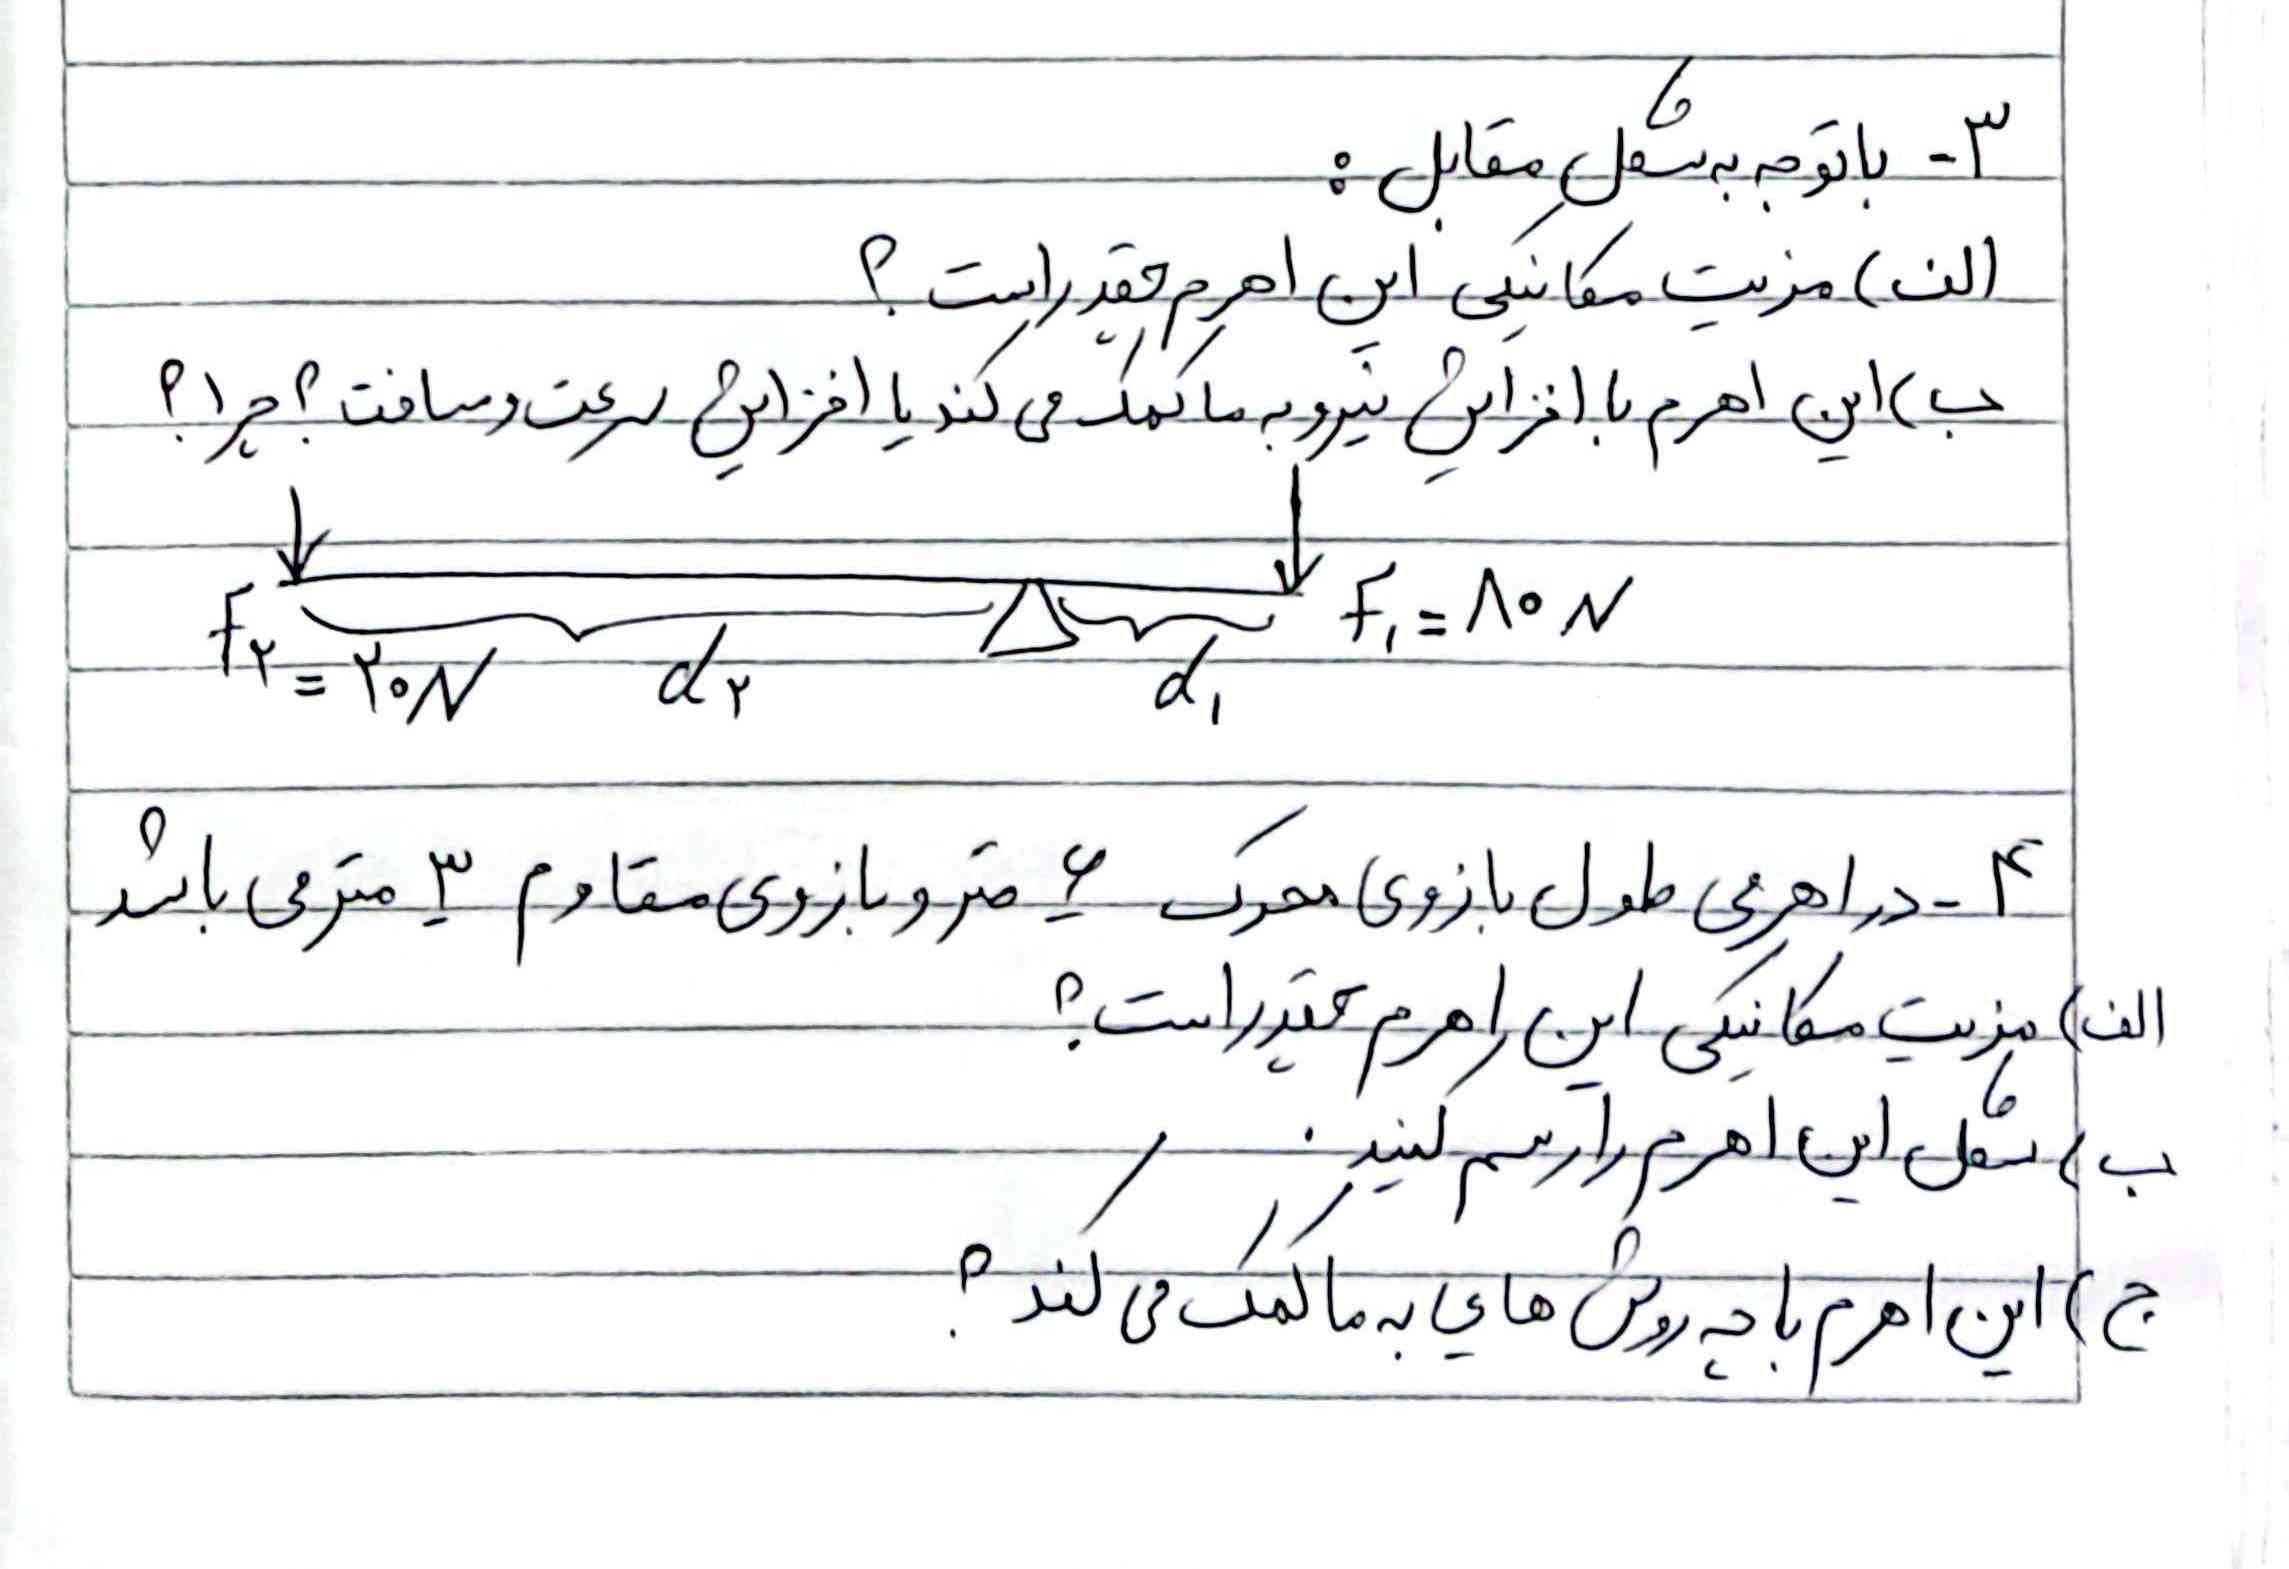 ۳- با توجه به شکل مقابل:
الف) مزیت مکانیکی این اهرم چقدر است؟
ب) این اهرم با افزایش نیرو به ما کمک می کند یا افزایش سرعت و مسافت؟ چرا؟
F۲ = ۲۰N d۲ d۱ F۱ = ۸۰N
۴- در اهرمی طول بازوی محرک ۶ متر و بازوی مقاوم ۳ متر می باشد
الف) مزیت مکانیکی این اهرم چقدر است؟
ب) شکل این اهرم را رسم کنید.
ج) این اهرم با چه روش هایی به ما کمک می کند؟